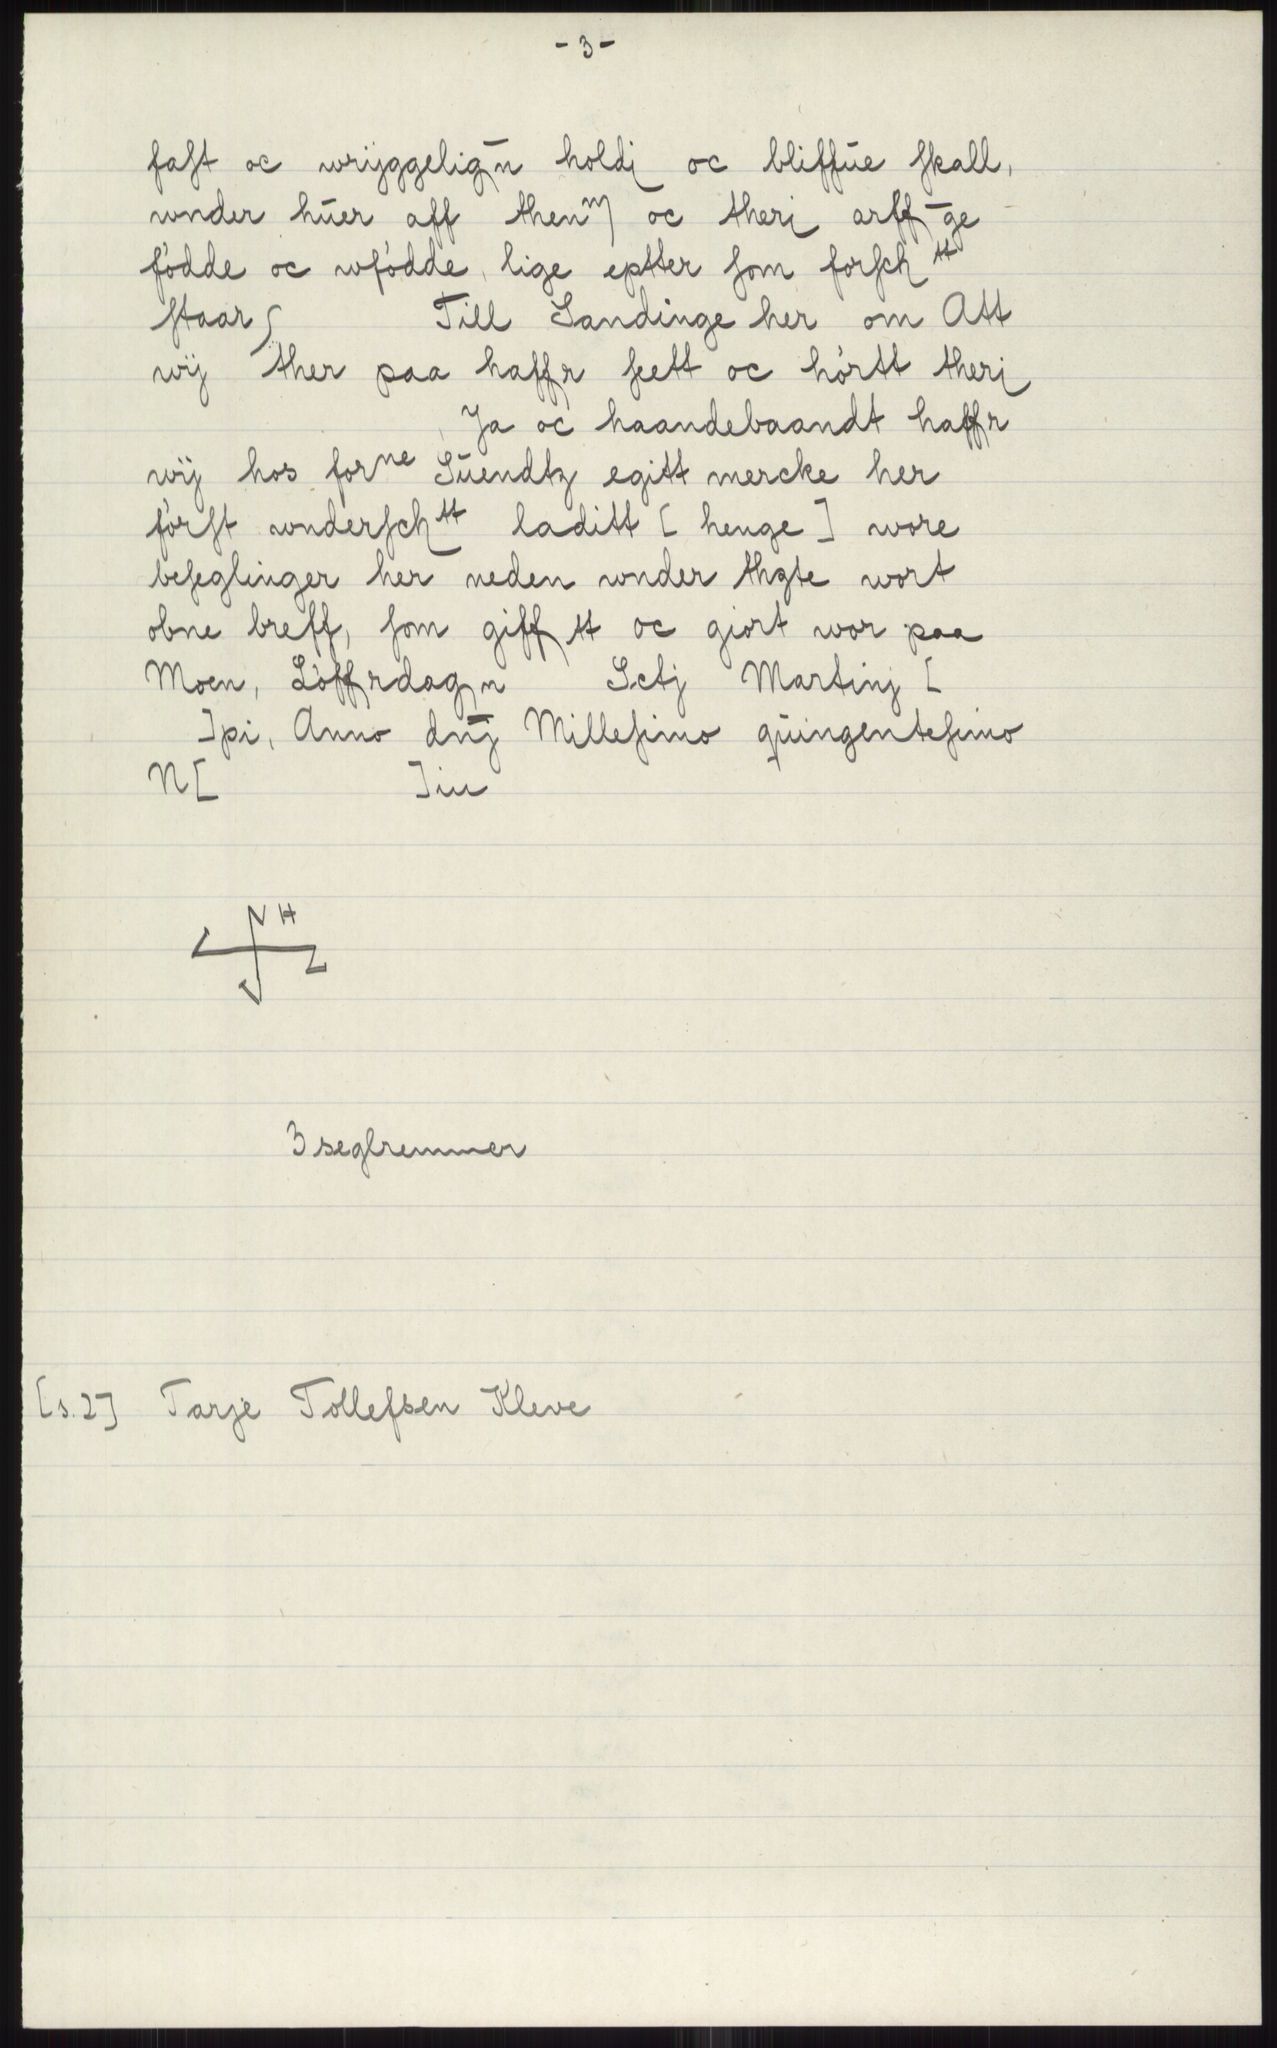 - 3 -
faſt oc wrÿggeliḡn holdj oc bliffūe ſkall,
wnder hūer aff thenm oc therj arff̄ge
fødde oc wfødde, lige eptter ſom forſchtt
ſtaar Till Sandinge her om Att
wÿ ther paa haffr ſeett oc hørtt therj
Ja oc haandebaandt haffr
wÿ hos forne Sūendtz egitt mercke her
førſt wnderſchtt laditt [ henge ] wore
beſeglinger her neden wnder thzte wort
obne breff, ſom gifftt oc giort wor paa
Moen, Løffrdagn̄ Sctj Martinj [
]pi, Anno dn̄j Milleſimo qūingenteſimo
N[ ]iu
H
3 seglremmer
[s.2] Tarje Tollefsen Kleve